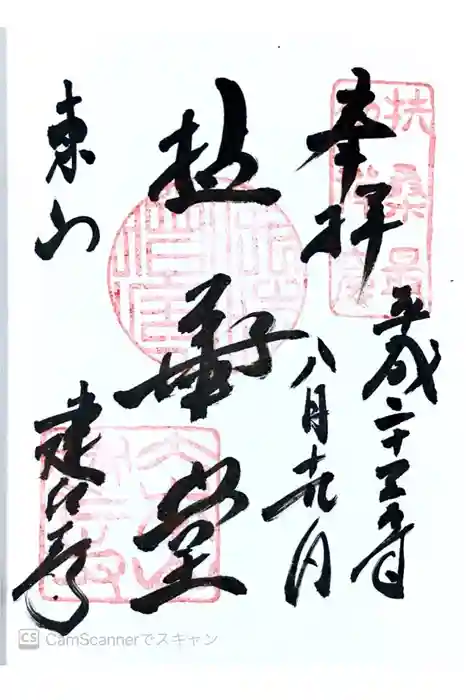 扶桑最
奉拝
平成二十五年
八月十九日
拈華堂
東山
建仁寺
CS CamScannerでスキャン